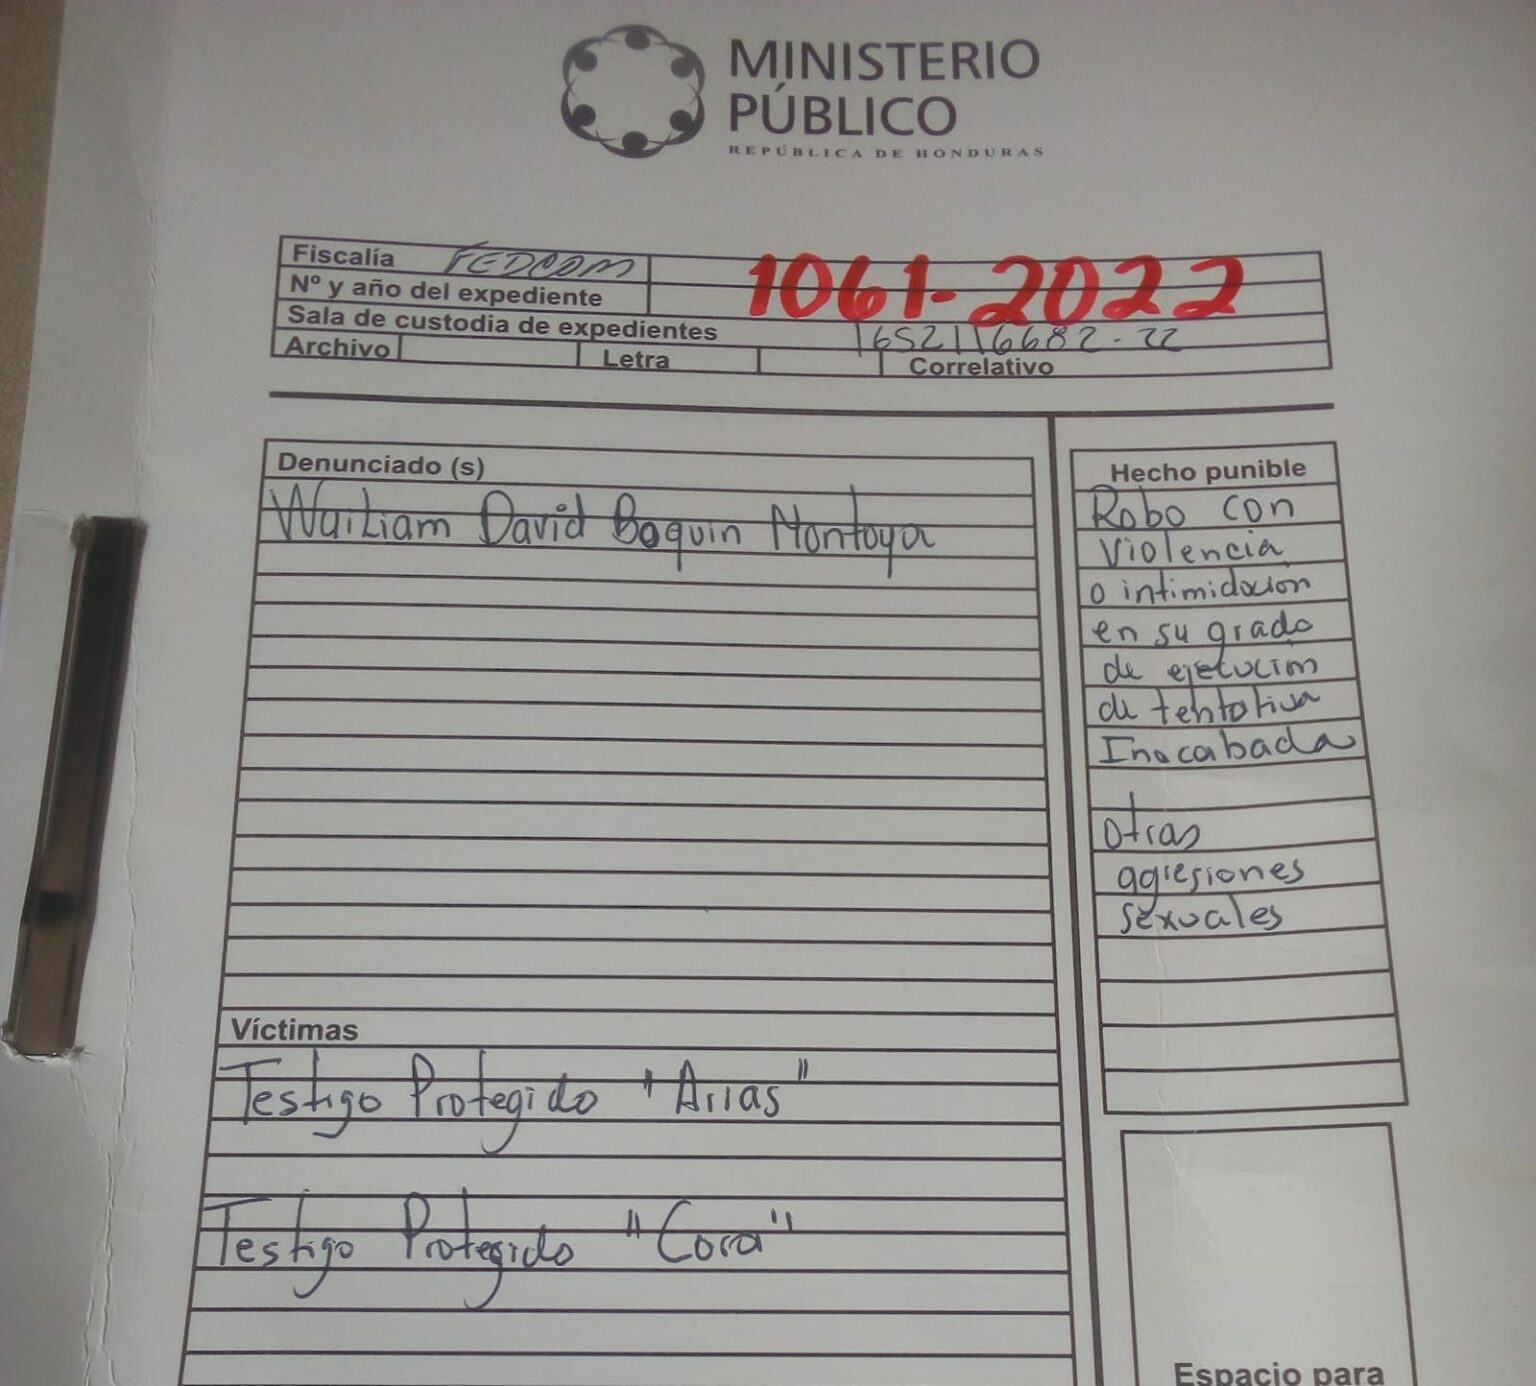 MINISTERIO
PÚBLICO
REPÚBLICA DE HONDURAS
Fiscalía FEDCOM
Nº y año del expediente 1061-2022
Sala de custodia de expedientes 1652116682-22
Archivo Letra Correlativo
Denunciado (s)
Wailiam David Boquin Montoya
Hecho punible
Robo con
Violencia
o intimidación
en su grado
de ejecución
de tentativa
Inacabada
otras
agresiones
sexuales
Víctimas
Testigo Protegido "Arias"
Testigo Protegido "Cora"
Espacio para